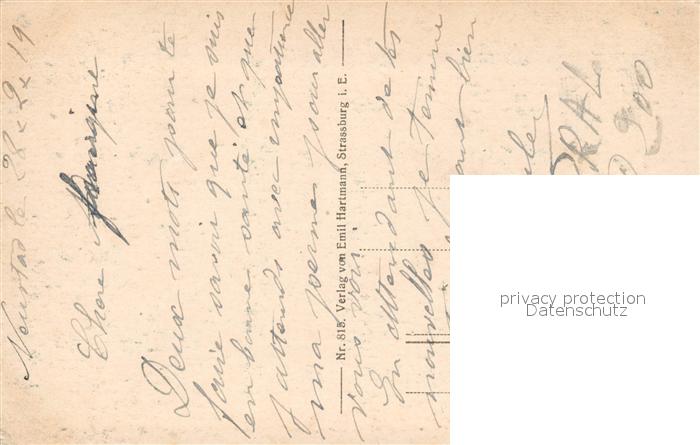 Neustad le 28 x 2 x 19
Chère
Deux mots pour te
faire savoir que je suis
en bonne santé et que
J'attends avec impatience
ma permes pour aller
vous voir
En attendant de tes
nouvelles je termine
bien
Nr. 815. Verlag von Emil Hartmann, Strassburg i. E.
privacy protection
Datenschutz